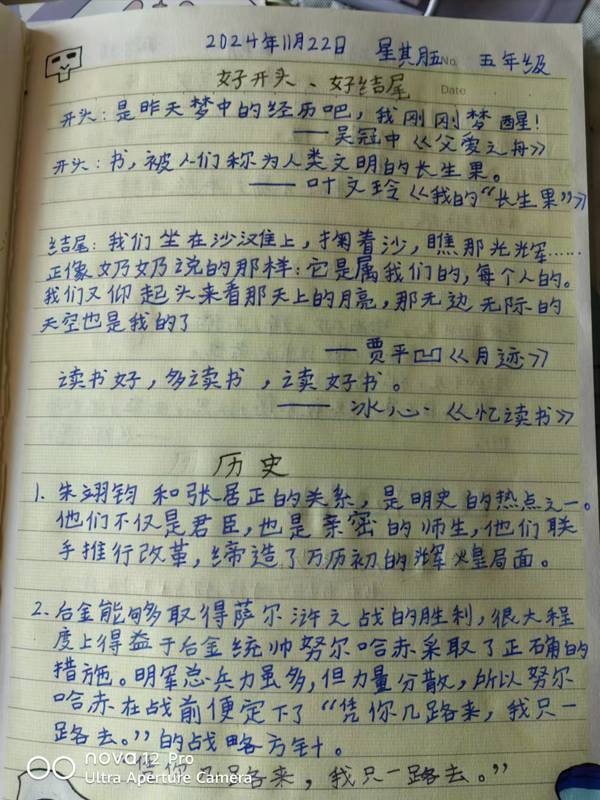 2024年11月22日 星其月五 No. 五年级
好开头、好结尾 Date
开头:是昨天梦中的经历吧,我刚刚梦醒!
——吴冠中《父爱之舟》
开头:书,被人们称为人类文明的长生果。
——叶文玲《我的“长生果”》
结尾:我们坐在沙滩上,掬着沙,瞧那光辉……
正像奶奶说的那样:它是属我们的,每个人的。
我们又仰起头来看那天上的月亮,那无边无际的
天空也是我的了
——贾平凹《月迹》
读书好,多读书,读好书。
——冰心《忆读书》
历史
1. 朱翊钧和张居正的关系,是明史的热点之一。
他们不仅是君臣,也是亲密的师生,他们联
手推行改革,缔造了万历初的辉煌局面。
2. 后金能够取得萨尔浒之战的胜利,很大程
度上得益于后金统帅努尔哈赤采取了正确的
措施。明军总兵力虽多,但力量分散,所以努尔
哈赤在战前便定下了“凭你几路来,我只一
路去。”的战略方针。
你几路来,我只一路去。”
nova 12 Pro
Ultra Aperture Camera